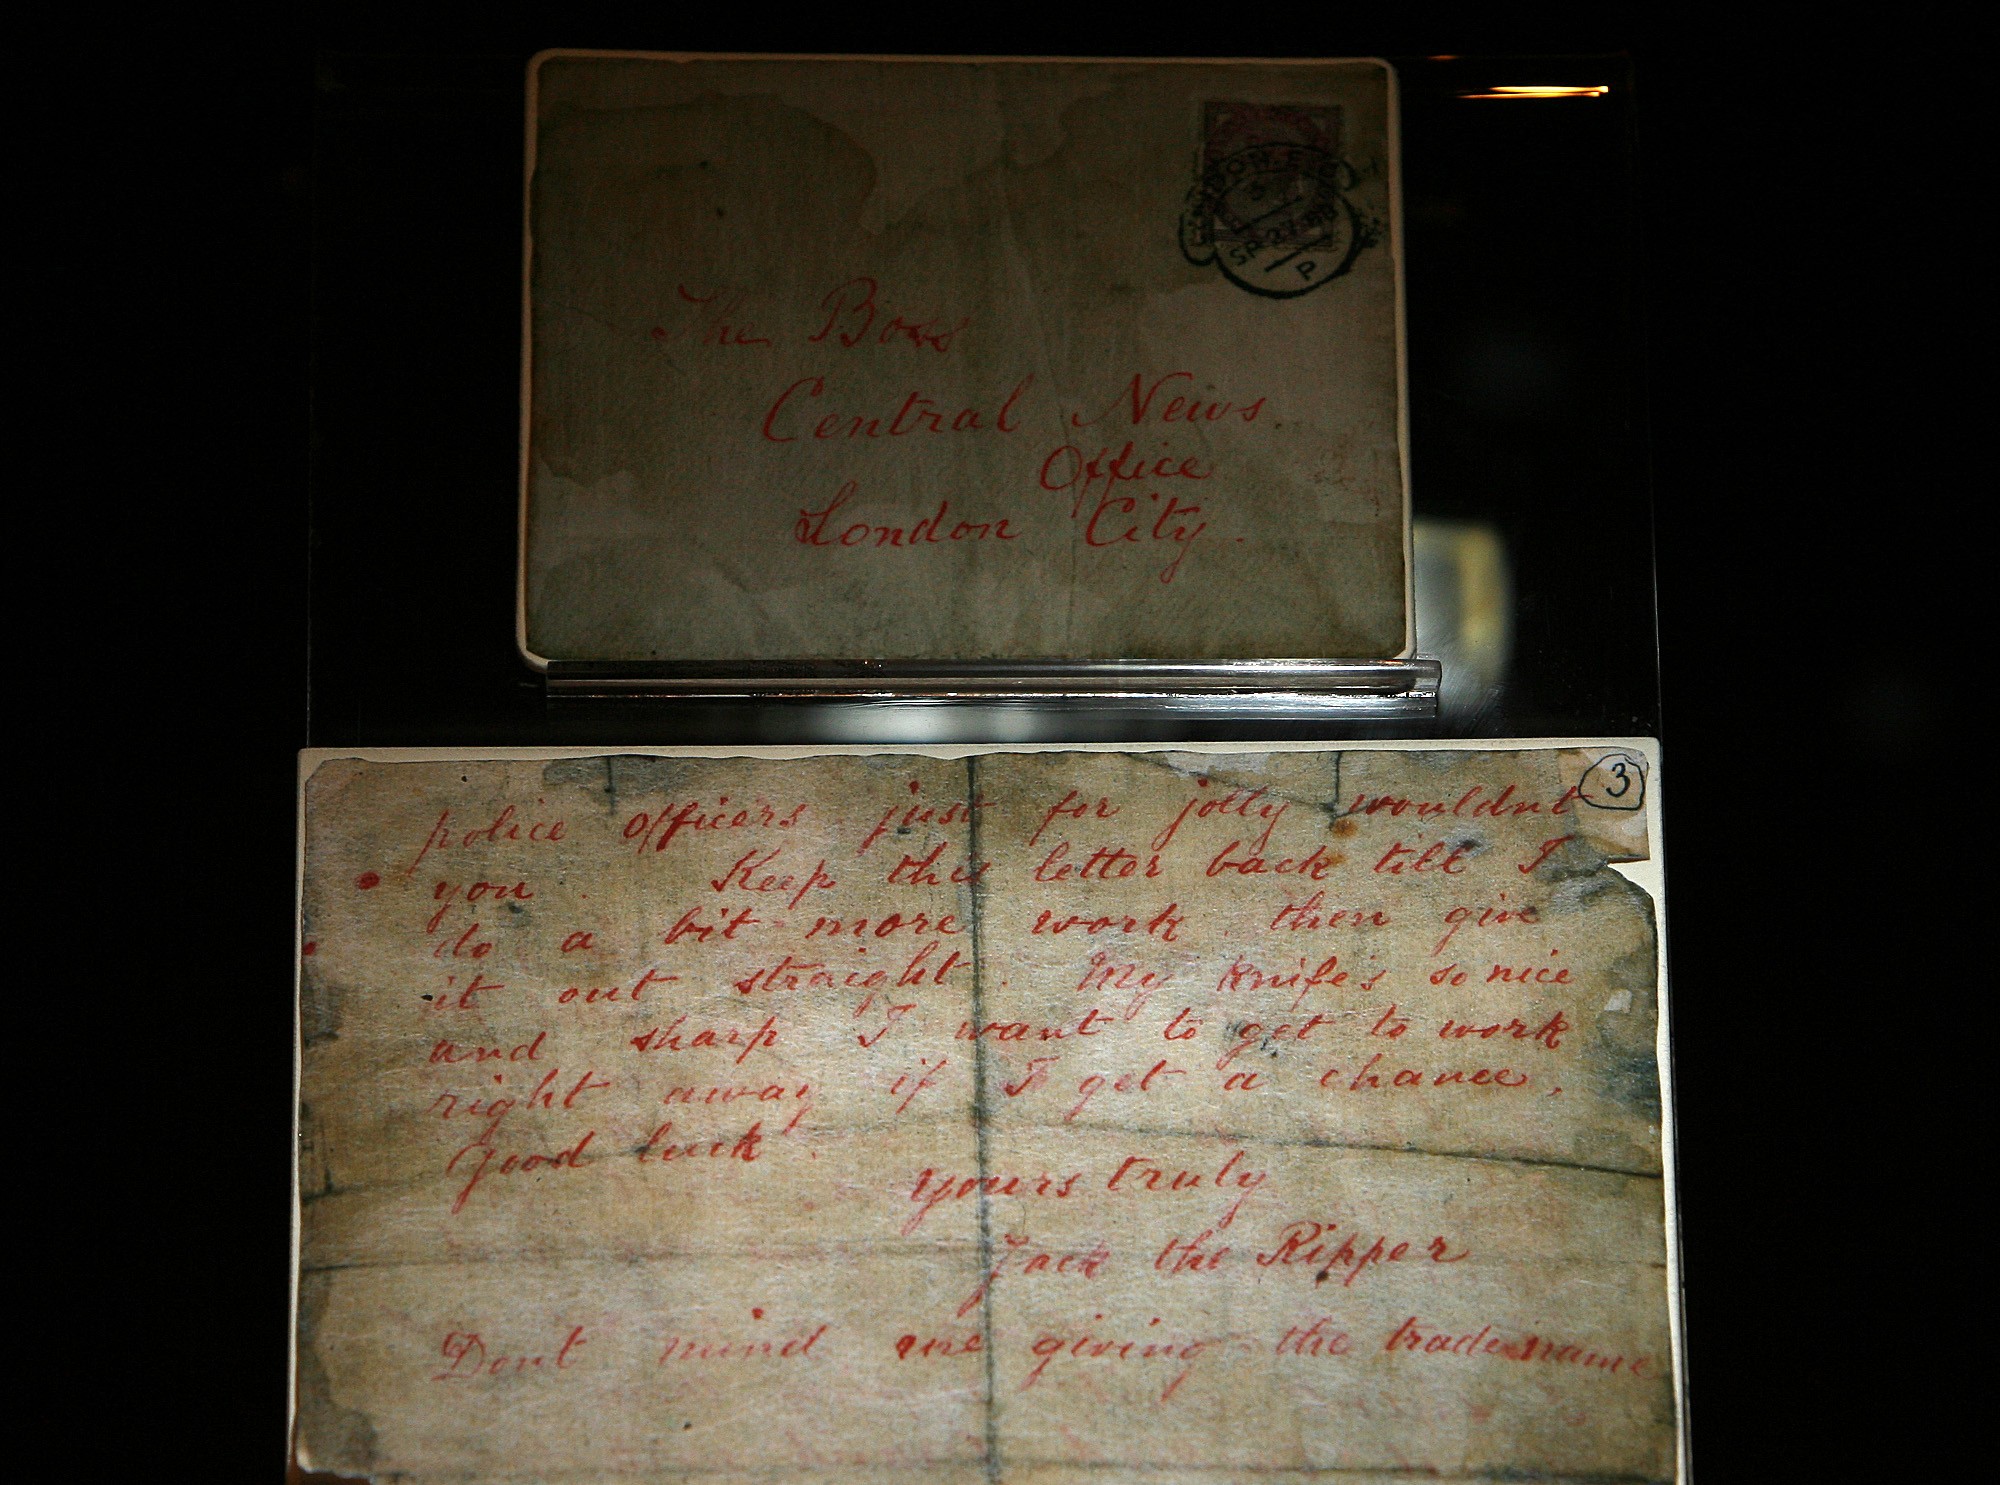 The Boss
Central News
Office
London City.
3
police officers just for jolly wouldnt
you. Keep this letter back till I
do a bit more work then give
it out straight. My knife's so nice
and sharp I want to get to work
right away if I get a chance,
good luck.
yours truly
Jack the Ripper
Dont mind me giving the trade name